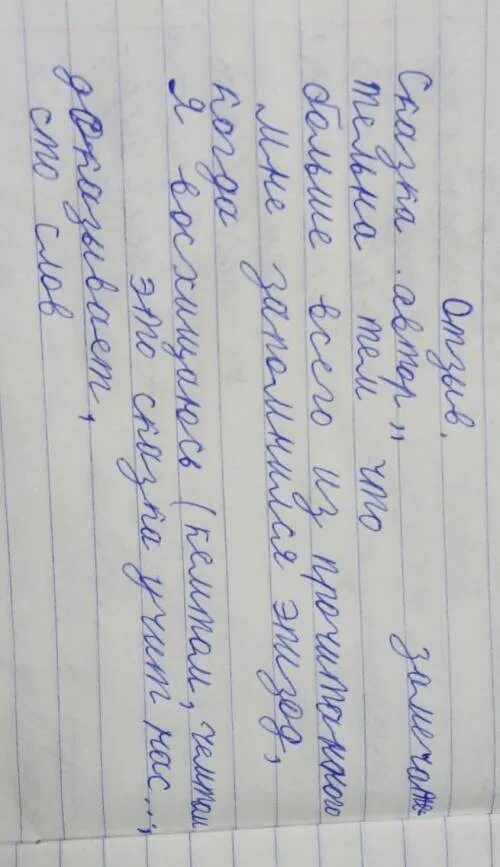 Отзыв.
Сказка „автор„ замеча
тельна тем что
больше всего из прочитанного
мне запомнился эпизод,
когда
Я восхищаюсь (кемтам, чемтам
это сказка учит нас...,
доказывает,
сто слов